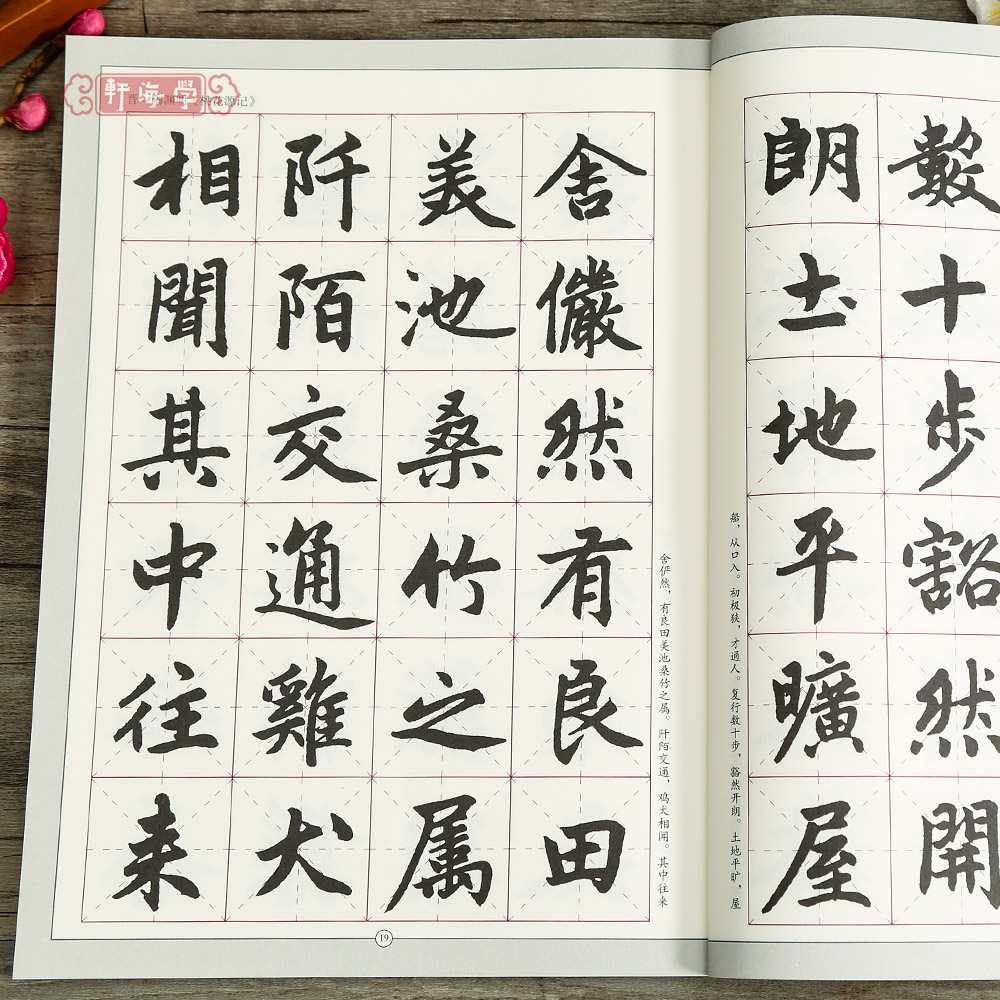 學海軒
桃花源记》
數十步豁然開
朗土地平曠屋
船，从口入。初极狭，才通人。复行数十步，豁然开朗。土地平旷，屋
舍儼然有良田
美池桑竹之属
阡陌交通雞犬
相聞其中往来
舍俨然，有良田美池桑竹之属。阡陌交通，鸡犬相闻。其中往来
19